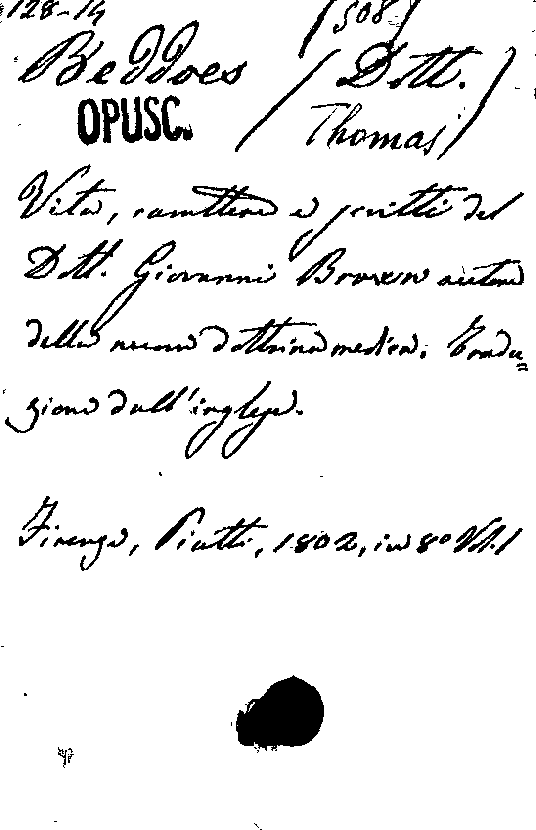 128-14 (508)
Beddoes (Dott.
OPUSC. Thomas)
Vita, carattere e scritti del
Dott. Giovanni Brown autore
della nuova dottrina medica. Tradu=
zione dall'inglese.
Firenze, Piatti, 1802, in 8º Vol. 1